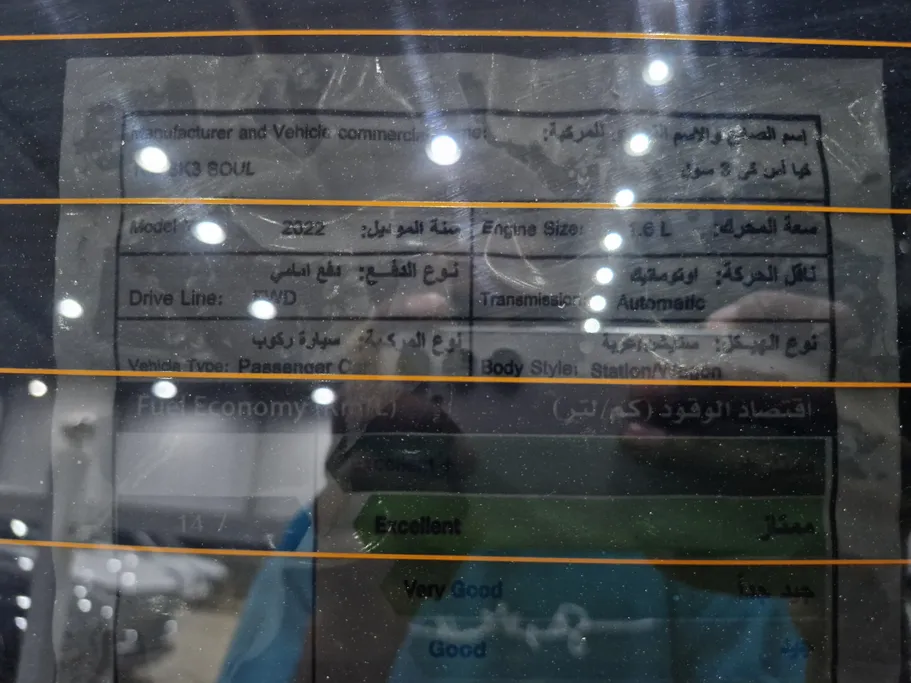 Manufacturer and Vehicle commercial
إسم الصانع والإسم للمركبة:
SK3 SOUL
كيا أس كى 3 سول
Model 2022 سنة الموديل:
Engine Size: 1.6 L سعة المحرك:
نوع الدفع: دفع امامي
Drive Line: FWD
ناقل الحركة: اوتوماتيك
Transmission: Automatic
نوع المركبة: سيارة ركوب
Vehicle Type: Passenger Car
نوع الهيكل: ستيشن/عربة
Body Style: Station/Wagon
Fuel Economy (Km/L) أقتصاد الوقود (كم/لتر)
14.7
Excellent ممتاز
Very Good جيد جداً
Good جيد